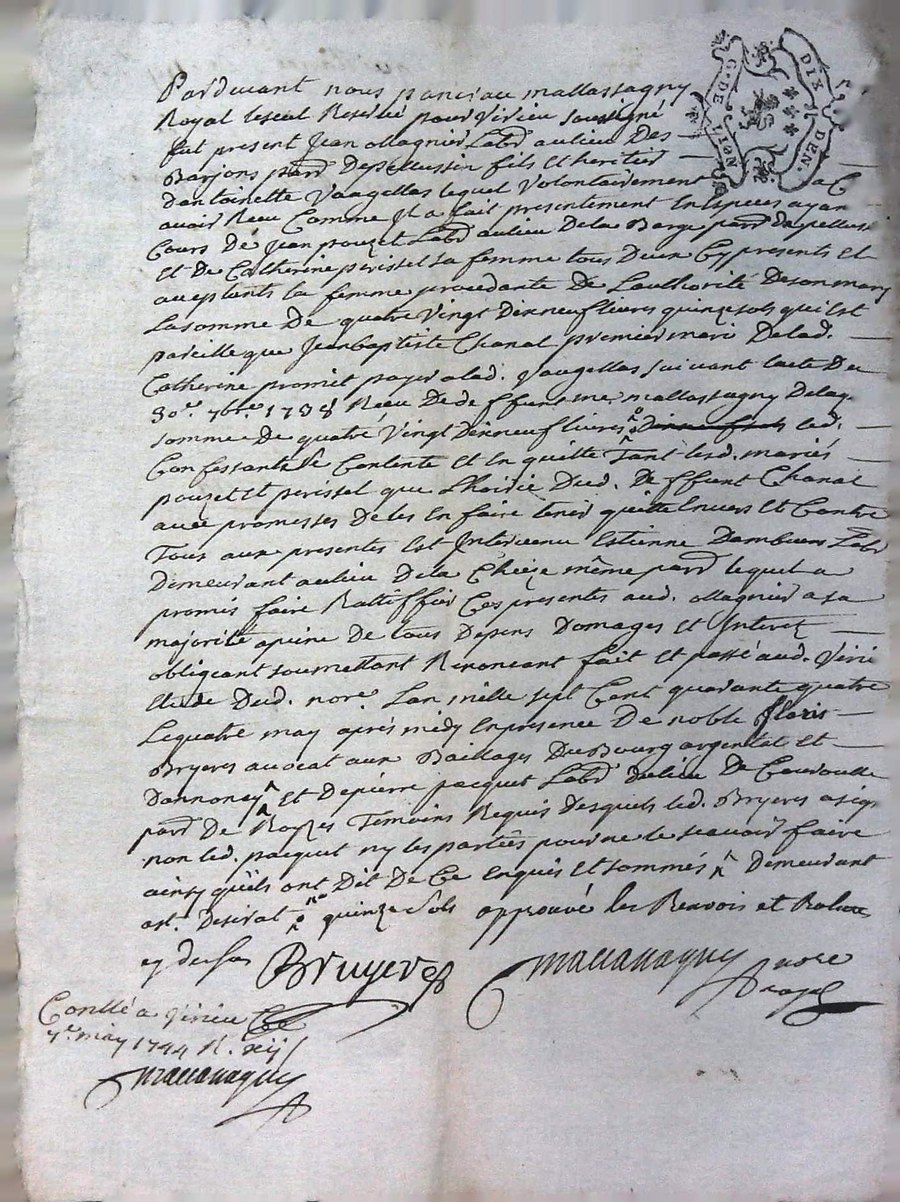 G. DE LION
DIX DEN.
Pardevant nous pancrace mallassagny
Royal Reservé pour Virieu soussigné
fut present Jean Magnier Labr au lieu Des
Barjons parr. De pellussin fils et heritier
Dantoinette Vaugellas lequel Volontairement a C
avoir Receu Comme Il a fait presentement En Especes ayan
Cours De Jean pouzet Labr au lieu Dela Barge parr De pellussi
Et De Catherine perissel sa femme tous Deux Cy presents Et
aceptants la femme procedante De Lauthorité De son mary
La somme De quatre Vingt Dix neuf livres quinze sols qui Est
pareille que Jean baptiste Chanal premier mari De lad.
Catherine promit payer a lad. Vaugellas suivant lacte Du
30e. 7bre. 1738 Receu De deffunt me. mallassagny De laq
somme De quatre Vingt Dix neuf livres led.
Confessant se Contente Et En quitte Tant lesd. mariés
pouzet Et perissel que Lhoirie Dud. Deffunt Chanal
avec promesses De les En faire tenir quitte Envers Et Contre
Tous aux presentes Est Intervenu Estienne Dambuen Labr
Demeurant au lieu De la Chieze même parr lequel a
promis faire Rattiffier Ces presentes aud. Magnier a sa
majorité a peine De tous Depens Domages Et Interet
obligeant soumettant Renonceant fait Et passé aud. Virie
Etude Dud. nore. Lan mille sept Cent quarante quatre
Le quatre may après midy En presence De noble floris
Bryeres avocat aux Baillages Du Bourg argental Et
Dannonay Et De pierre pacquet Labr Du lieu De
parr De Roizes Temoins Requis Desquels led. Bryeres a sign
non led. pacquet ny les parties pour ne le scavoir faire
ainsy qu'ils ont Dit De Ce Enquis Et sommés Demeurant
quinze sols approuvé les Renvois et Ratures
cy dessus Bruyere Mallassagny nore
royal
Conllé a Virieu Ce
7e. may 1744 R. xij s
Mallassagny